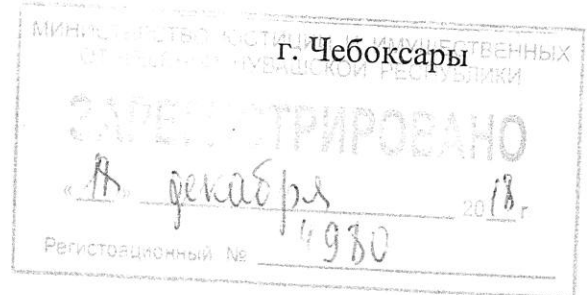 г. Чебоксары
МИНИСТЕРСТВО ЮСТИЦИИ И ИМУЩЕСТВЕННЫХ
ОТНОШЕНИЙ ЧУВАШСКОЙ РЕСПУБЛИКИ
ЗАРЕГИСТРИРОВАНО
« » декабря 2018 г.
Регистрационный № 4980